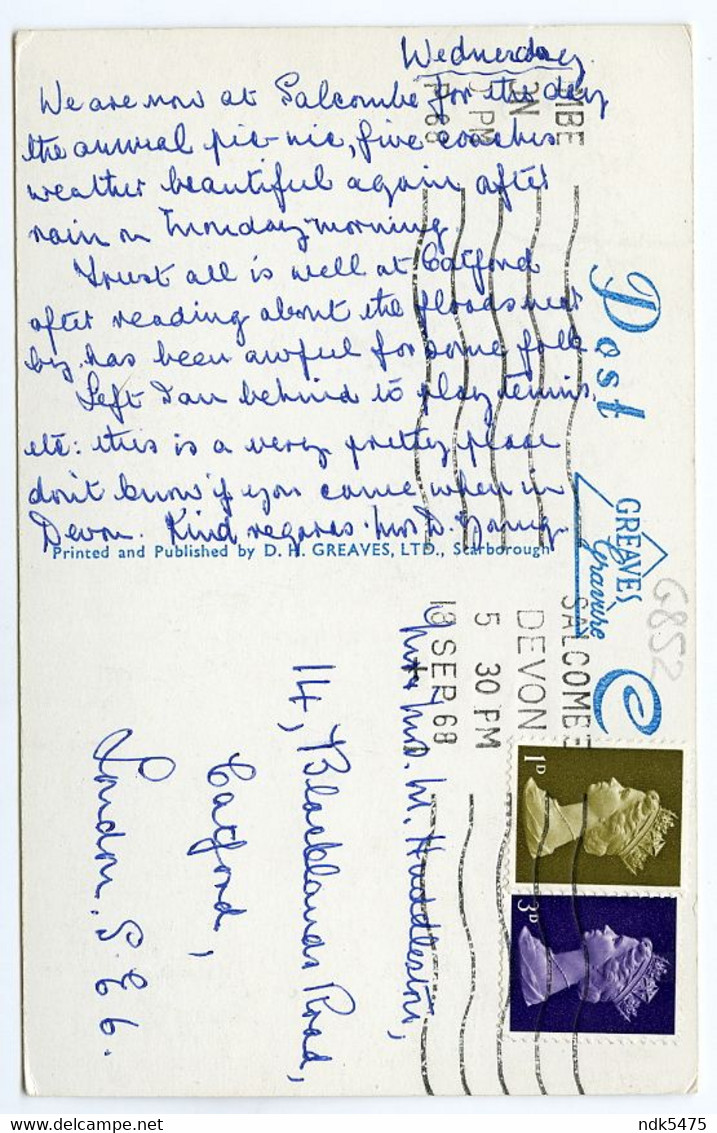 Wednesday.
We are now at Salcombe for the day
the annual pic-nic, five coaches
weather beautiful again after
rain on Monday morning.
Trust all is well at Catford
after reading about the floods near
by, has been awful for some folk
Left Ian behind to play tennis,
etc: this is a very pretty place
don't know if you came when in
Devon. Kind regards. Mrs D. Young.
Printed and Published by D. H. GREAVES, LTD., Scarborough
Post
GREAVES
Gravure
C
G852
SALCOMBE
DEVON
5 30 PM
18 SEP 68
MBE
ON
PM
P 68
1D
3D
Mr + Mrs. M. Huddleston,
14, Blacklands Road,
Catford,
London. S.E 6.
ndk5475